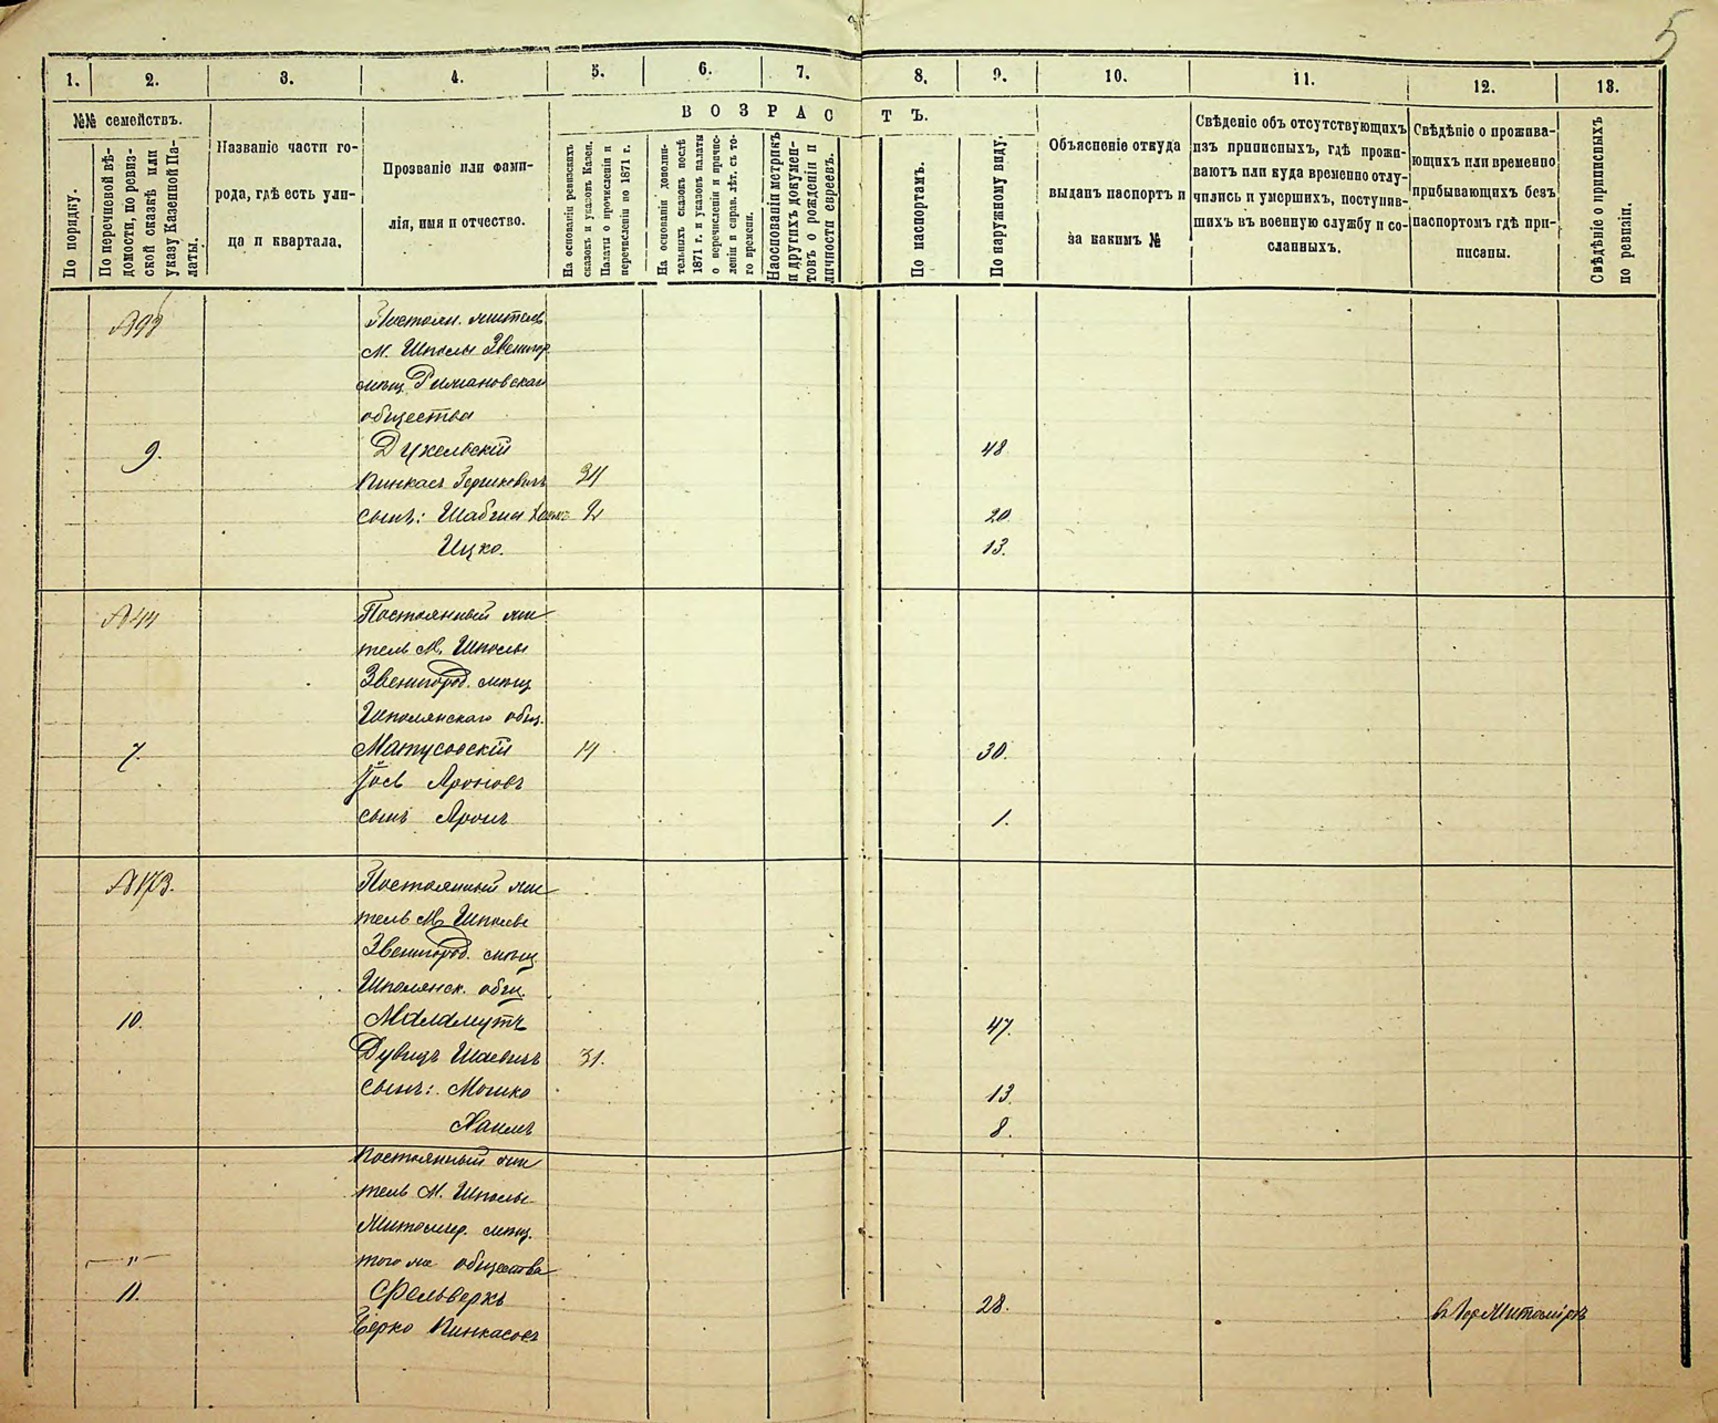 5
1.
2.
3.
4.
5.
6.
7.
8.
9.
10.
11.
12.
13.
№№ семействъ.
По порядку.
По перечневой вѣ-
домости, по ревиз-
ской сказкѣ или
указу Казенной Па-
латы.
Названіе части го-
рода, гдѣ есть ули-
ца и квартала.
Прозваніе или фами-
лія, имя и отчество.
ВОЗРАСТЪ.
На основаніи ревизскихъ
сказокъ и указовъ Казен.
Палаты о причисленіи и
перечисленіи по 1871 г.
На основаніи дополни-
тельныхъ сказокъ послѣ
1871 г. и указовъ палаты
о перечисленіи и причис-
леніи и справ. лѣт. съ то-
го времени.
Наоснованіи метрикъ
и другихъ докумен-
товъ о рожденіи и
личности евреевъ.
По паспортамъ.
По наружному виду.
Объясненіе откуда
выданъ паспортъ и
за какимъ №
Свѣденіе объ отсутствующихъ
изъ приписныхъ, гдѣ прожи-
ваютъ или куда временно отлу-
чились и умершихъ, поступив-
шихъ въ военную службу и со-
сланныхъ.
Свѣдѣніе о прожива-
ющихъ или временно
прибывающихъ безъ
паспортомъ гдѣ при-
писаны.
Свѣдѣніе о приписныхъ
по ревизіи.
Постоян. житель
М. Шполы Звенигор.
мѣщ
общества
9. 48
Пинкасъ Гершковичъ 34
сынъ: 2 20.
Ицко. 13.
№44 Постоянный жи
тель М. Шполы
Звенигород. мѣщ
Шполянскаго общ.
7. Матусовскій 14 30.
Іось Ароновъ
сынъ Аронъ 1.
№173. Постоянный жи
тель М. Шполы
Звенигород. мѣщ.
Шполянск. общ.
10. Маламутъ 47.
31.
сынъ: Мошко 13
Хаимъ 8.
Постоянный жи
тель М. Шполы
Житомир. мѣщ.
—"— того же общества
11. Фельверкъ 28. въ гор Житомірѣ
Берко Пинкасовъ